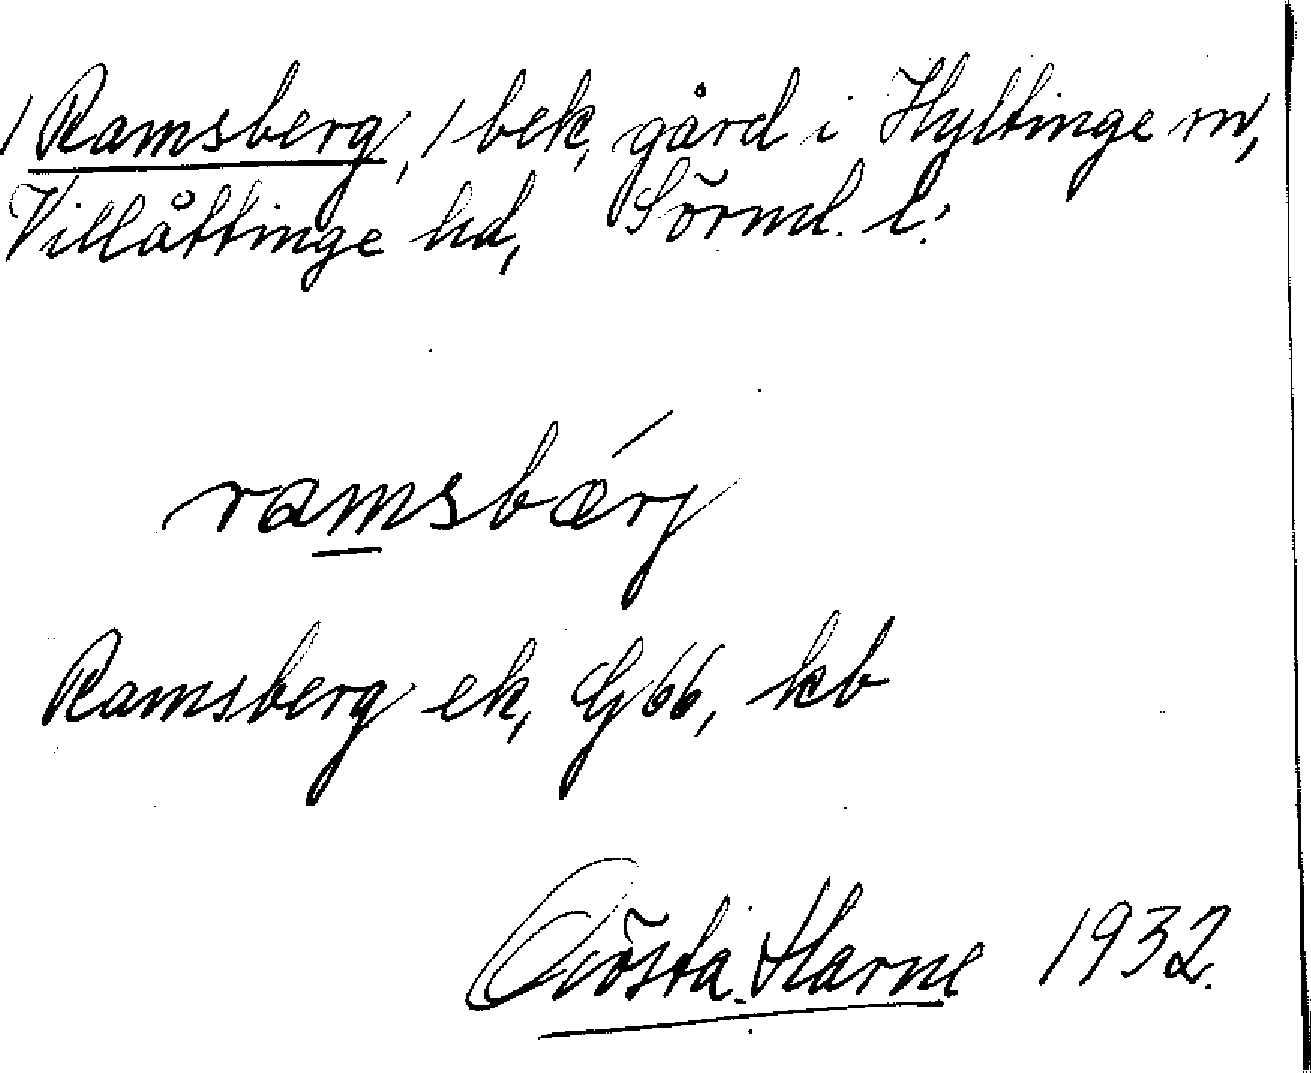 /Ramsberg, / bek, gård i Hyltinge sn,
Villåttinge hd, Sörml. l.
ramsbǽrj
Ramsberg ek, G 66, kb
Gösta Harne 1932.